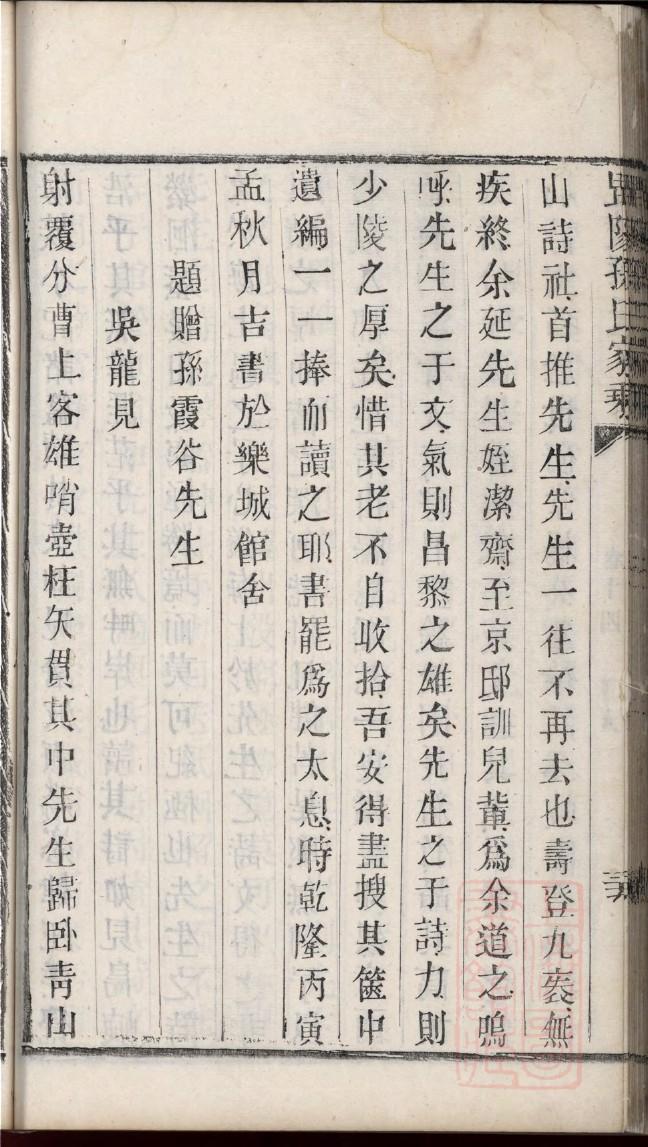 陽孫氏家乘
山詩社首推先生先生一往不再去也壽登九袠無
疾終余延先生姪潔齋至京邸訓兒輩爲余道之嗚
呼先生之于文氣則昌黎之雄矣先生之于詩力則
少陵之厚矣惜其老不自收拾吾安得盡搜其篋中
遺編一一捧而讀之耶書罷爲之太息時乾隆丙寅
孟秋月吉書於樂城館舍
題贈孫霞谷先生
吳龍見
射覆分曹上客雄哨壺枉矢貫其中先生歸卧靑山